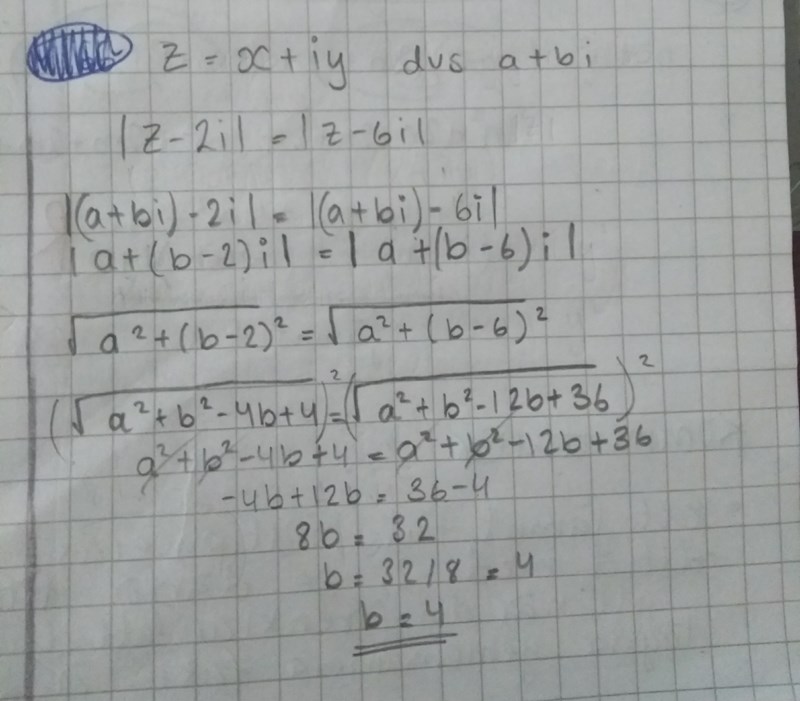 z = x + iy dvs a + bi
|z - 2i| = |z - 6i|
|(a+bi) - 2i| = |(a+bi) - 6i|
|a + (b-2)i| = |a + (b-6)i|
√(a² + (b-2)²) = √(a² + (b-6)²)
(√(a² + b² - 4b + 4))² = (√(a² + b² - 12b + 36))²
a² + b² - 4b + 4 = a² + b² - 12b + 36
-4b + 12b = 36 - 4
8b = 32
b = 32/8 = 4
b = 4